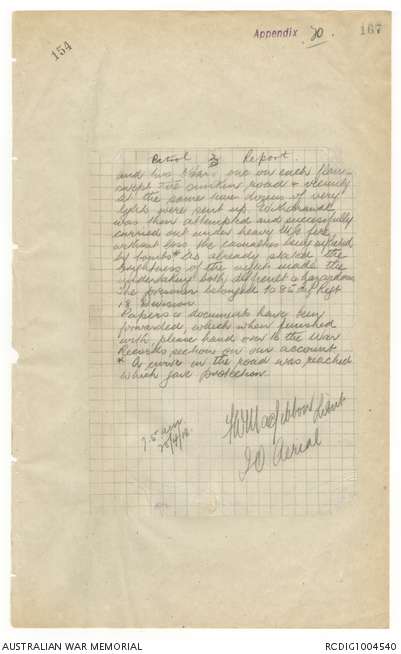 154
Appendix 20.
167
Patrol 3 Report.
and two M Guns one on each flan-
swept the sunken road & vicinity
at the same time dozens of very
lights were sent up. Withdrawal
was then attempted and successfully
carried out under heavy M.G. fire
without loss the casualties being inflicted
by bombs* As already stated the
brightness of the night made the
undertaking both difficult & hazardous
The prisoner belonged to 85th Regt
18 Division.
Papers & documents have been
forwarded, which when finished
with, please hand over to the War
Records section on our account.
* A curve in the road was reached
which gave protection.
7.5 am
20/4/18.
Lieut
I O Aerial
AUSTRALIAN WAR MEMORIAL
RCDIG1004540